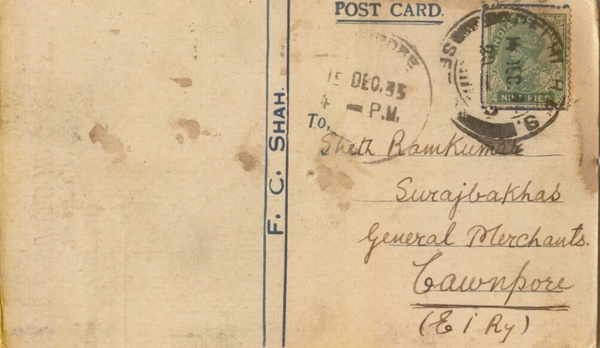 POST CARD.
15 DEC. 35
4 — P.M.
INDIA POSTAGE
NINE PIES
F. C. SHAH.
To,
Sheth Ramkumar
Surajbakhas
General Merchants.
Cawnpore
(E I Ry)